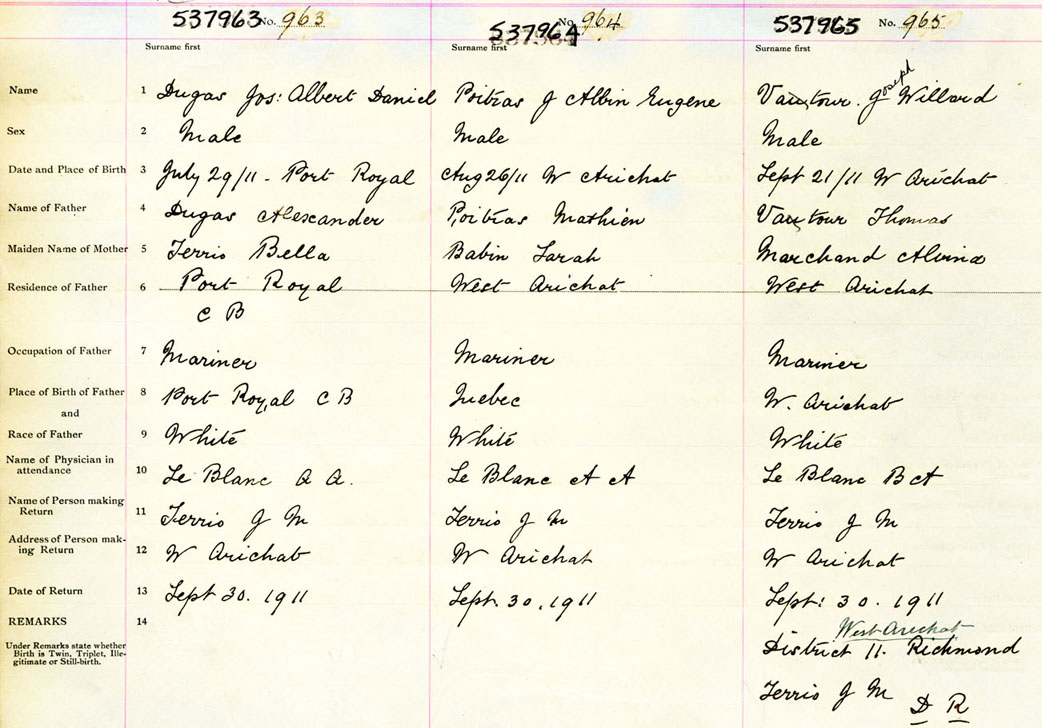 537963 No. 963 537964 No. 964 537965 No. 965
Surname first Surname first Surname first
Name 1 Dugas Jos: Albert Daniel Poitras J Albin Eugene Vautour. Joseph Willard
Sex 2 Male Male Male
Date and Place of Birth 3 July 29/11 - Port Royal Aug 26/11 W Arichat Sept 21/11 W Arichat
Name of Father 4 Dugas Alexander Poitras Mathien Vautour Thomas
Maiden Name of Mother 5 Terrio Bella Babin Sarah Marchand Alvina
Residence of Father 6 Port Royal West Arichat West Arichat
C B
Occupation of Father 7 Mariner Mariner Mariner
Place of Birth of Father 8 Port Royal C B Quebec W. Arichat
and
Race of Father 9 White White White
Name of Physician in
attendance 10 Le Blanc A A. Le Blanc A A Le Blanc B A
Name of Person making
Return 11 Terrio J M Terrio J M Terrio J M
Address of Person mak-
ing Return 12 W Arichat W Arichat W Arichat
Date of Return 13 Sept 30. 1911 Sept. 30, 1911 Sept: 30. 1911
REMARKS 14 West Arichat
Under Remarks state whether
Birth is Twin, Triplet, Ille-
gitimate or Still-birth.
District 11. Richmond
Terrio J M D R